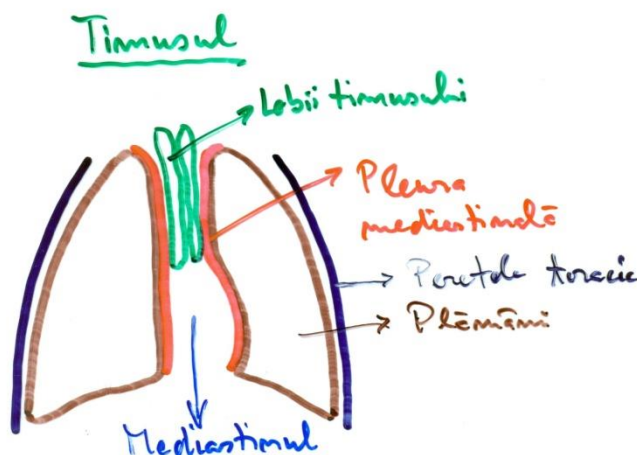 Timusul
Lobii timusului
Pleura
mediastinală
Peretele toracic
Plămâni
Mediastinul